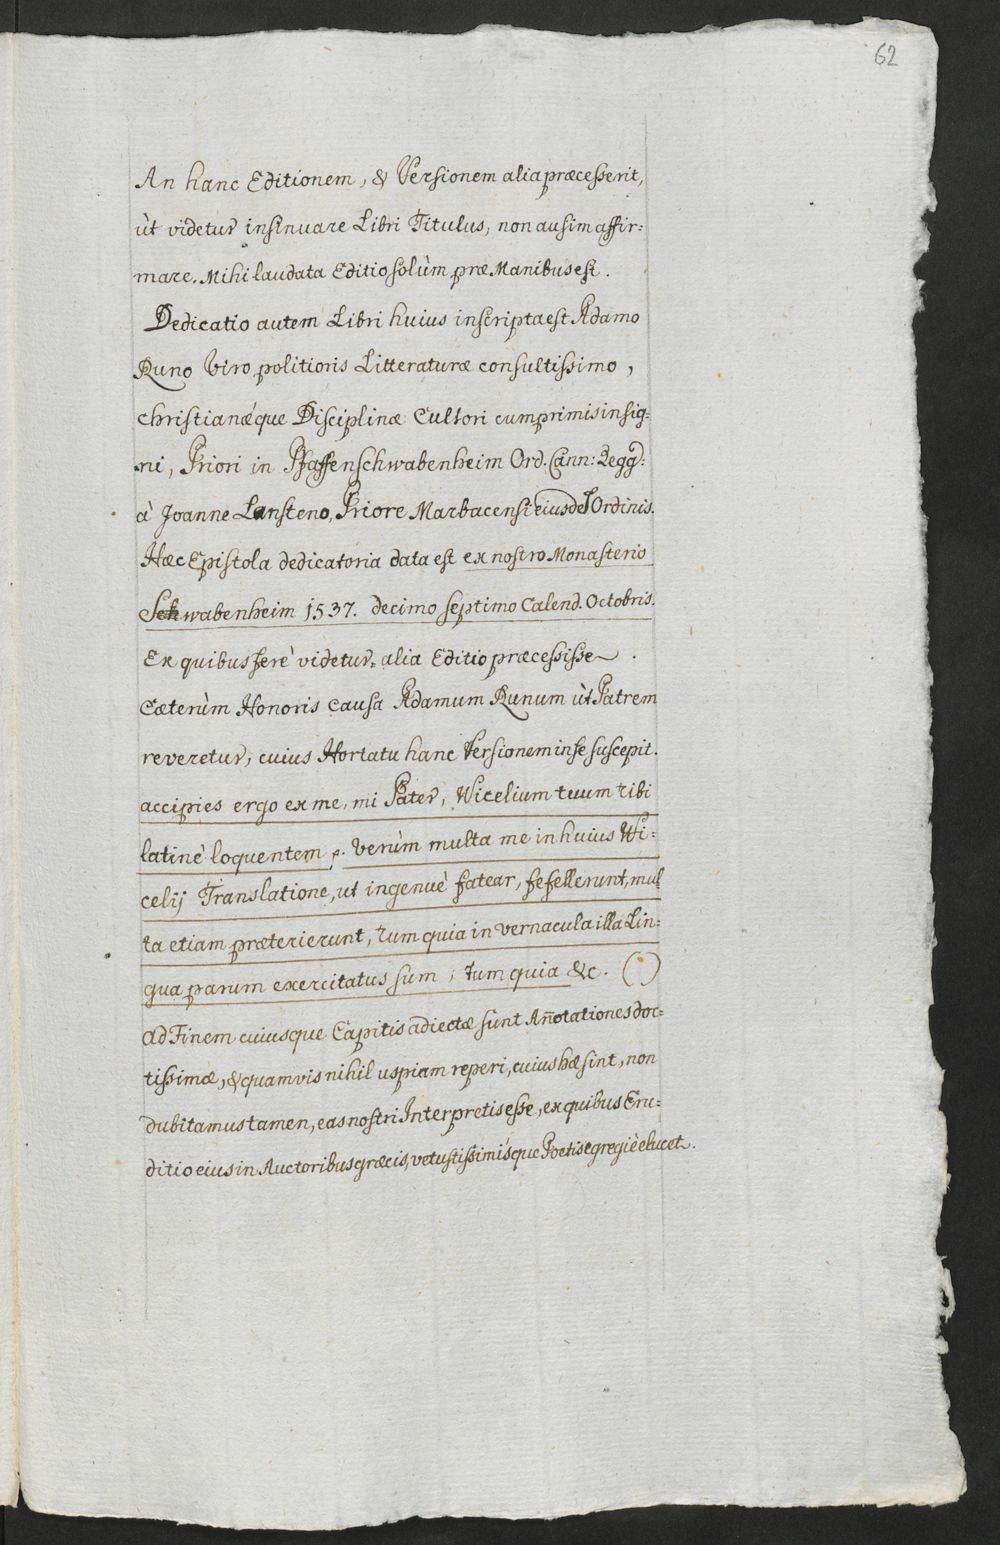 62
An hanc Editionem, & Versionem alia præcesserit,
ùt videtur insinuare Libri Titulus, non ausim affir=
mare. Mihi laudata Editio solùm præ Manibus est.
Dedicatio autem Libri huius inscripta est Adamo
Runo Viro politioris Litteraturæ consultissimo,
christianæ´que Disciplinæ Cultori cumprimis insig=
ni, Priori in Pfaffenschwabenheim Ord. Cann: Regg:
à Joanne Lansteno, Priore Marbacensi eiusde[m] Ordinis.
Hæc Epistola dedicatoria data est ex nostro Monasterio
Schwabenheim 1537. decimo septimo Calend. Octobris.
Ex quibus ferè videtur alia Editio præcessisse.
Cæterùm Honoris causa Adamum Runum ùt Patrem
reveretur, cuius Hortatu hanc Versionem in se suscepit.
accipies ergo ex me, mi Pater, Wicelium tuum tibi
latinè loquentem p. verùm multa me in huius Wi=
celij Translatione, ut ingenuè fatear, fefellerunt, mul
ta etiam præterierunt, tum quia in vernacula illa Lin=
gua parum exercitatus sum, tum quia &c. (")
ad Finem cuiusque Capitis adiectæ sunt Añotationes doc=
tissimæ, & quamvis nihil uspiam reperi, cuius hæ sint, non
dubitamus tamen, eas nostri Interpretis esse, ex quibus Eru=
ditio eius in Auctoribus græcis, vetustissimísque Poetis egregiè elucet.